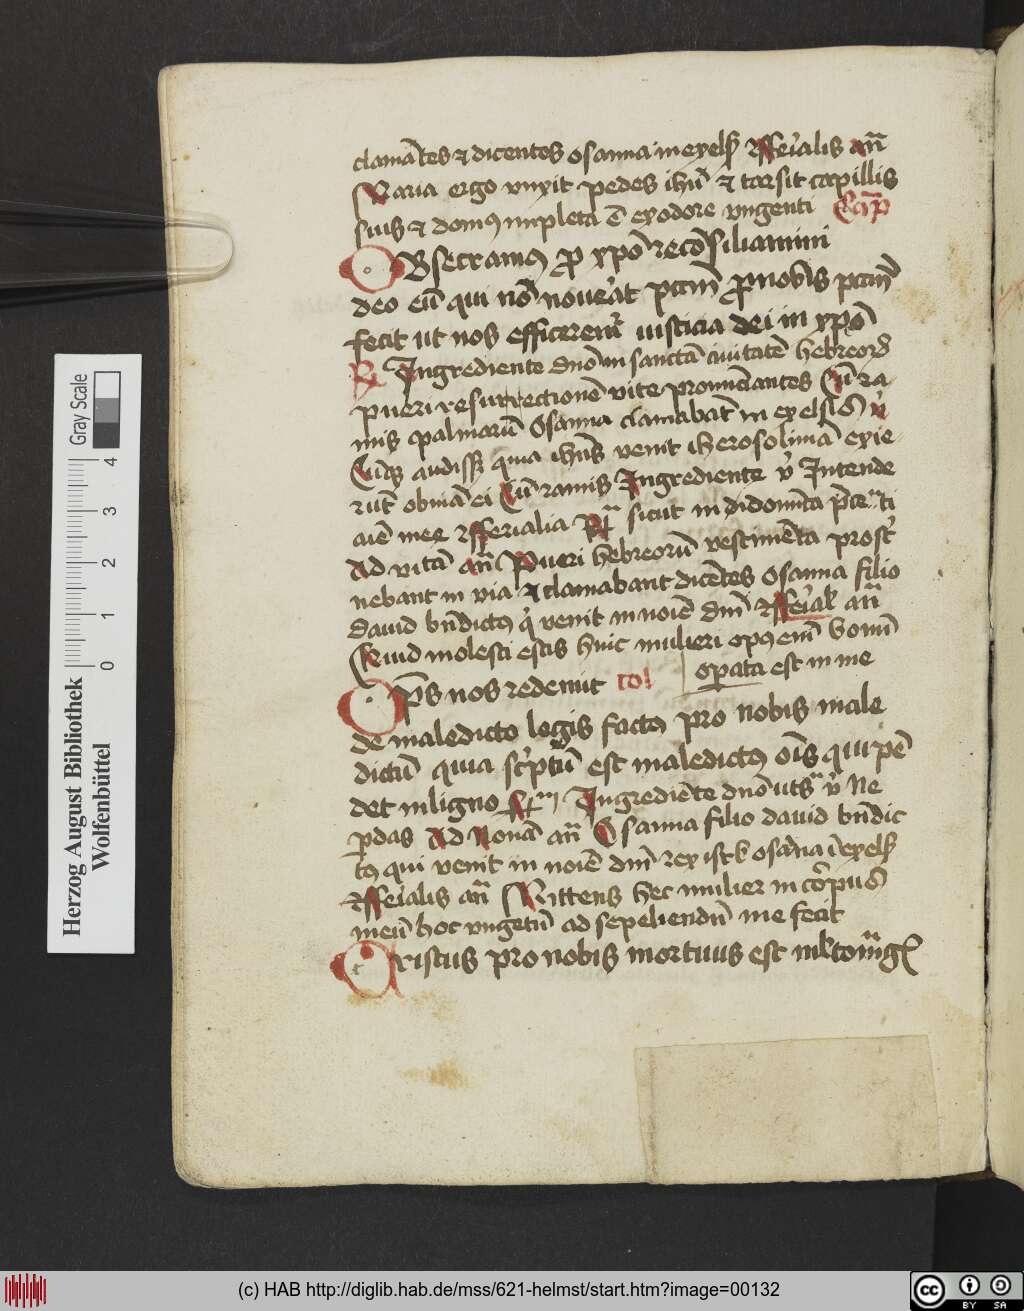 clamātes ⁊ dicentes osanna in exels̄ ⁊ fferialis an̄
Maria ergo vnxit pedes ihū ⁊ tersit capillis
suis ⁊ domꝰ impleta ē ex odore vngenti Cap̄
OBsecramꝰ ꝓ xp̄o recōsiliamini
deo eū qui nō nouerat pctm̄ ꝓ nobis pctm̄
fecit ut nos efficeremꝰ iusticia dei in xp̄o
R Ingrediente dn̄o in sanctā ciuitatē hebreorꝝ
pueri resurrectionē vite pronūciantes Cū ra
mis palmarū Osanna clamabāt in excelsis v̄
Cūqꝫ audissꝫ quia ihūs venit iherosolimā exie
rūt obuiā ei Cū ramis Ingrediente v̄ Intende
aīe mee ⁊ fferialia sicut in
Ad vitā an̄ Pueri hebreorū vestimēta prost͛
nebant in via ⁊ clamabant dicētes osanna filio
dauid bn̄dictꝰ q̇ venit in noīe dn̄i ⁊ fferial͛ an̄
Quid molesti estis huic mulieri opꝰ enī bonū
operata est in me
Xp̄s nos redemit col
de maledicto legis factꝰ pro nobis male
dictū quia sc͛ptū est maledictꝰ oīs qui pē
det in ligno Ingrediēte dn̄o uts͛ v̄ Ne
ꝑdas Ad Nonā an̄ Osanna filio dauid bn̄dic
tꝰ qui venit in noīe dn̄i rex isrl͛ osanna ī exels̄
⁊ fferialis an̄ Mittens hec mulier in corpus
meū hoc vngētū ad sepeliendū me fecit
Cristus pro nobis mortuus est
Herzog August Bibliothek
Wolfenbüttel
Gray Scale
0 1 2 3 4
(c) HAB http://diglib.hab.de/mss/621-helmst/start.htm?image=00132
cc BY SA